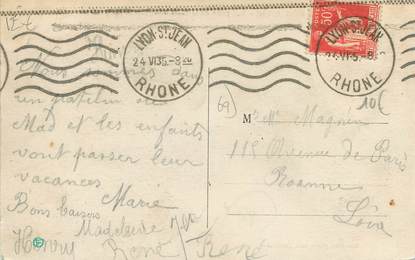 LYON-ST JEAN
24 VI 35-8
RHONE
LYON-ST JEAN
RHONE
50
10€
69
Nous sommes dans
un patelin où
Mad et les enfants
vont passer leur
vacances
Marie
Bons baisers
Madeleine
Henry
René
René
Melle Magnin
115 Avenue de Paris
Roanne
Loire